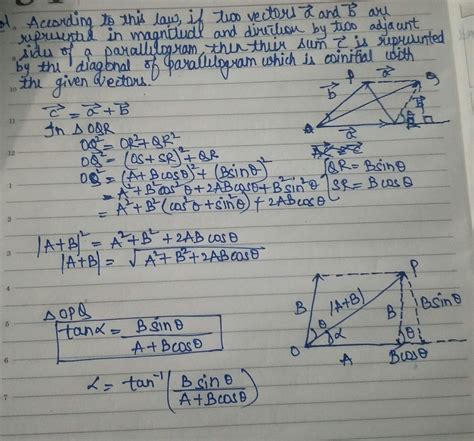 According to this law, if two vectors a⃗ and b⃗ are
represented in magnitude and direction by two adjacent
sides of a parallelogram then their sum c⃗ is represented
by the diagonal of parallelogram which is coinitial with
the given vectors.
c⃗ = a⃗ + b⃗
In △OQR
OQ² = OR² + QR²
OQ² = (OS+SR)² + QR
OQ² = (A+Bcosθ)² + (Bsinθ)²
= A² + B²cos²θ + 2ABcosθ + B²sin²θ
= A² + B²(cos²θ + sin²θ) + 2ABcosθ
P
a⃗
Q
b⃗
a⃗
QR = Bsinθ
SR = Bcosθ
|A+B|² = A² + B² + 2ABcosθ
|A+B| = √A² + B² + 2ABcosθ
△OPQ
tanα = Bsinθ / A+Bcosθ
α = tan⁻¹ (Bsinθ / A+Bcosθ)
P
B
|A+B|
B
Bsinθ
θ
α
θ
O
A
Bcosθ
11
12
1
2
3
4
5
6
7